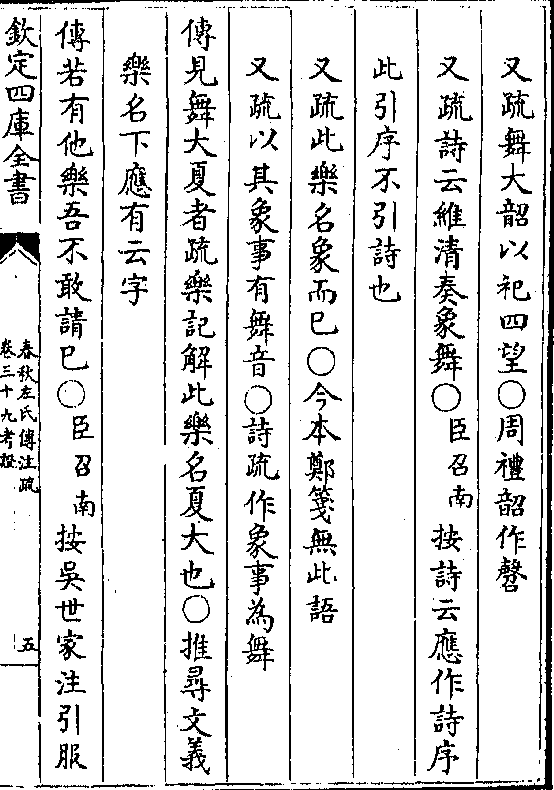 又疏舞大韶以祀四望○周禮韶作㲈
又疏詩云維清奏象舞○臣召南按詩云應作詩序
此引序不引詩也
又疏此樂名象而已○今本鄭箋無此語
又疏以其象事有舞音○詩疏作象事為舞
傳見舞大夏者疏樂記解此樂名夏大也○推尋文義
樂名下應有云字
傳若有他樂吾不敢請已○臣召南按吳世家注引服
欽定四庫全書
春秋左氏傳注疏
卷三十九考證
五